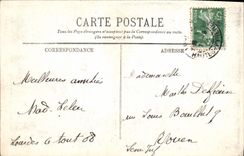 CARTE POSTALE
Tous les Pays étrangers n'acceptent pas la Correspondance au recto
(Se renseigner à la Poste)
CORRESPONDANCE
ADRESSE
Meilleures amitiés
Lourdes 6 Aout 08
Mademoiselle
Marthe
rue Louis Bouilhet 7
Rouen